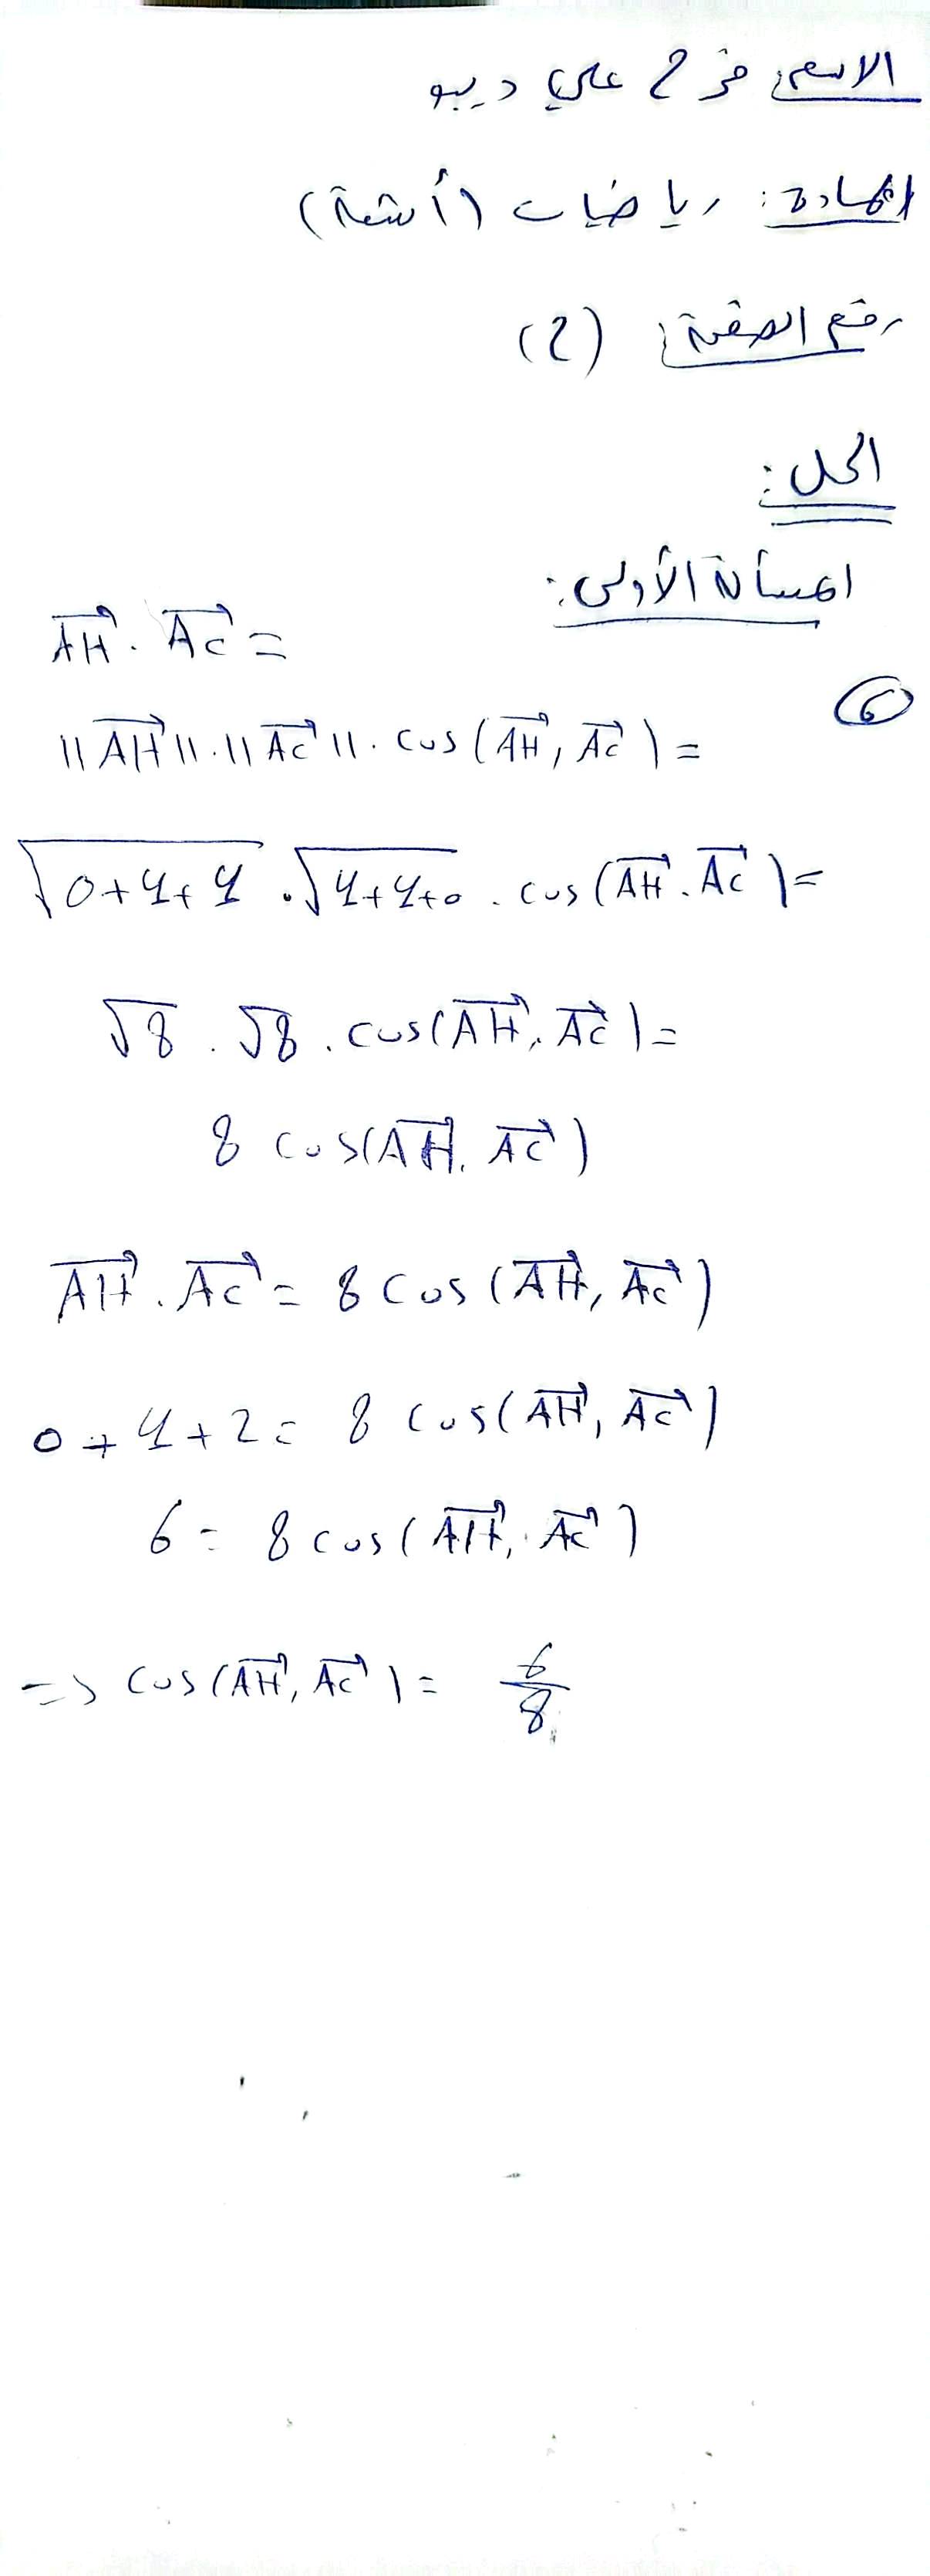 الاسم: فرح علي ديبو
المادة: رياضيات (أشعة)
رقم الصفحة: (2)
الحل:
المسألة الأولى:
AH⃗ . AC⃗ =
6
||AH⃗||.||AC⃗||. cos(AH⃗, AC⃗) =
√0+4+4 . √4+4+0 . cos(AH⃗. AC⃗) =
√8 . √8 . cos(AH⃗, AC⃗) =
8 cos(AH⃗. AC⃗)
AH⃗ . AC⃗ = 8 cos(AH⃗, AC⃗)
0 + 4 + 2 = 8 cos(AH⃗, AC⃗)
6 = 8 cos(AH⃗, AC⃗)
=> cos(AH⃗, AC⃗) = 6/8